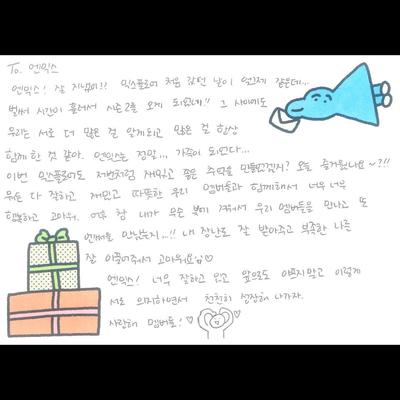 To. 엔믹스
엔믹스! 잘 지냈어?! 믹스플로어 처음 갔던 날이 엊그제 같은데...
벌써 시간이 흘러서 시즌2를 오게 되었네!! 그 사이에도
우리는 서로 더 많은 걸 알게되고 많은 걸 항상
함께 한 것 같아. 엔믹스는 정말... 가족이 되었다...
이번 믹스플로어도 저번처럼 재밌고 좋은 추억을 만들었겠지? 오늘 즐거웠나요~?!!
뭐든 다 잘하고 재밌고 따뜻한 우리 멤버들과 함께해서 너무너무
행복하고 고마워. 어우 참 내가 무슨 복에 겨워서 우리 멤버들을 만나고 또
엔써를 만났는지...!! 내 장난도 잘 받아주고 부족한 나를
잘 이끌어줘서 고마워요잉♡
엔믹스! 너무 잘하고 있고 앞으로도 아프지말고 이렇게
서로 의지하면서 천천히 성장해 나가자.
사랑해 멤버들!♡